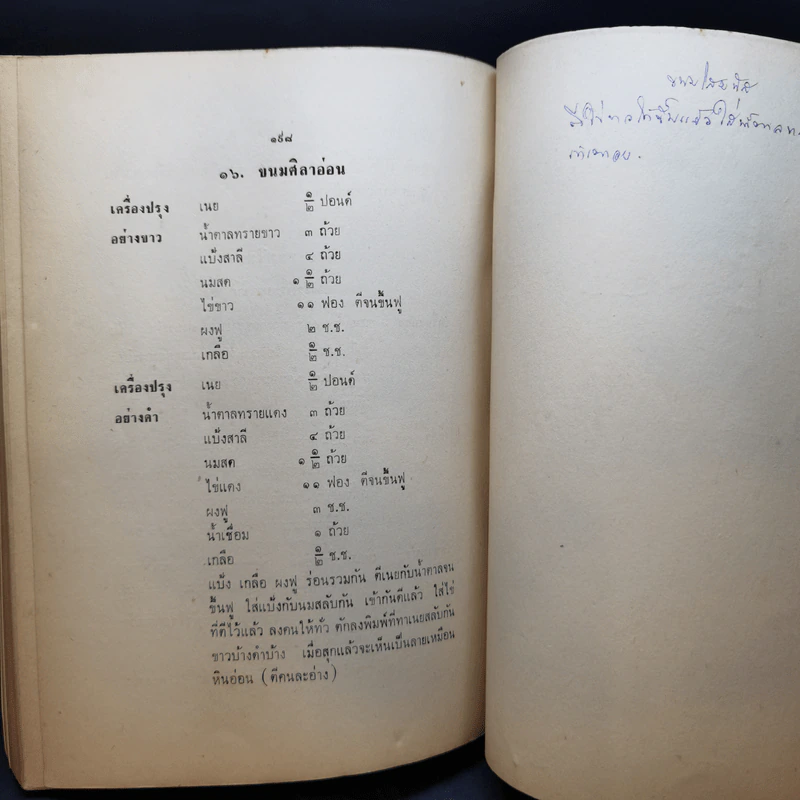 ๑๙๘
๑๖. ขนมศิลาอ่อน
เครื่องปรุง เนย ๑/๒ ปอนด์
อย่างขาว น้ำตาลทรายขาว ๓ ถ้วย
แป้งสาลี ๔ ถ้วย
นมสด ๑ ๑/๒ ถ้วย
ไข่ขาว ๑๑ ฟอง ตีจนขึ้นฟู
ผงฟู ๒ ช.ช.
เกลือ ๑/๒ ช.ช.
เครื่องปรุง เนย ๑/๒ ปอนด์
อย่างดำ น้ำตาลทรายแดง ๓ ถ้วย
แป้งสาลี ๔ ถ้วย
นมสด ๑ ๑/๒ ถ้วย
ไข่แดง ๑๑ ฟอง ตีจนขึ้นฟู
ผงฟู ๓ ช.ช.
น้ำเชื่อม ๑ ถ้วย
เกลือ ๑/๒ ช.ช.
แป้ง เกลือ ผงฟู ร่อนรวมกัน ตีเนยกับน้ำตาลจน
ขึ้นฟู ใส่แป้งกับนมสลับกัน เข้ากันดีแล้ว ใส่ไข่
ที่ตีไว้แล้ว ลงคนให้ทั่ว ตักลงพิมพ์ที่ทาเนยสลับกัน
ขาวบ้างดำบ้าง เมื่อสุกแล้วจะเห็นเป็นลายเหมือน
หินอ่อน (ตีคนละอ่าง)
ตีไข่ขาวให้ขึ้นแล้วใส่น้ำตาล